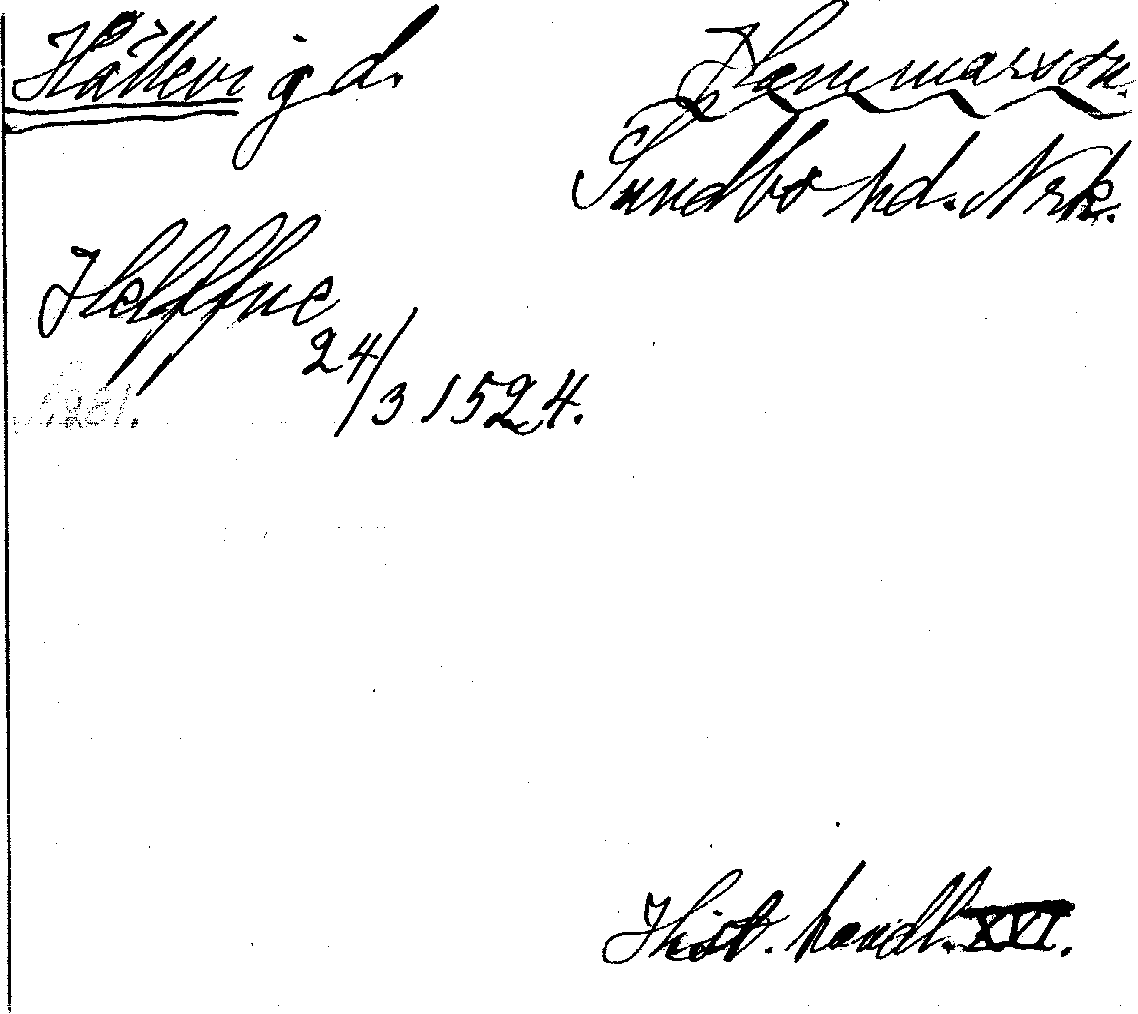 Hällevi gd. Hammars sn.
Sundbo hd. Nrk.
Helffue
24/3 1524.
Hist. handl. XVI.